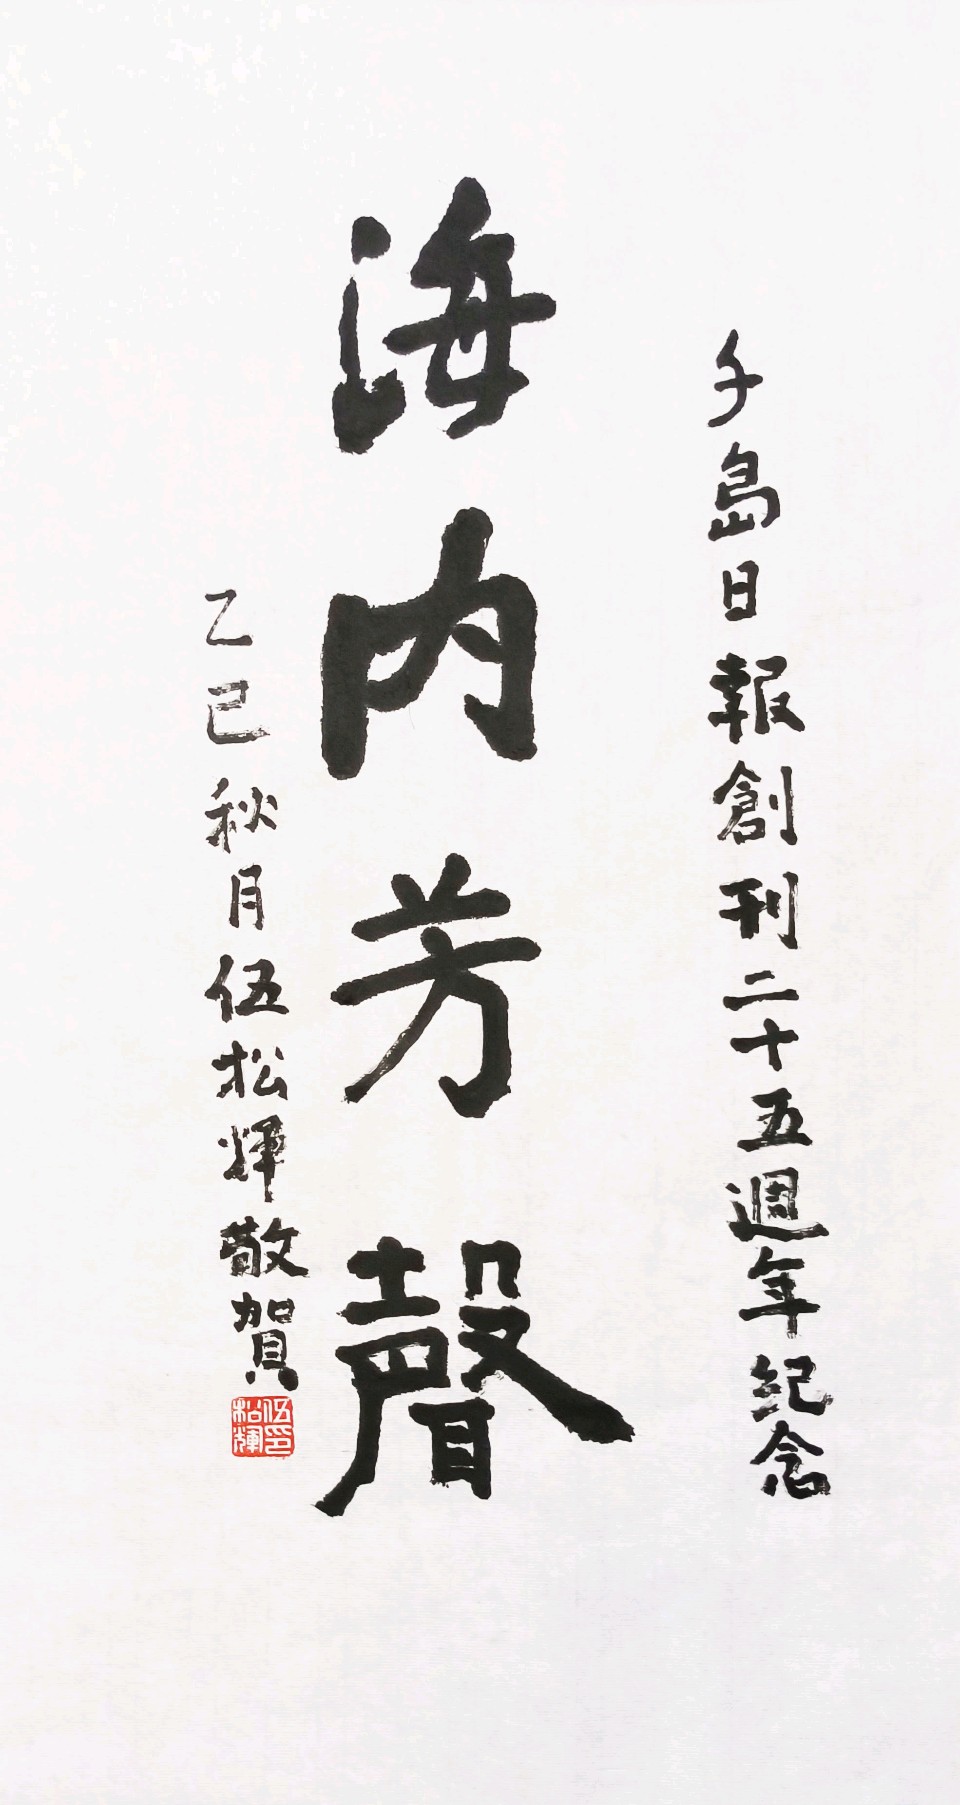 千島日報創刊二十五週年紀念
海内芳聲
乙巳秋月伍松輝敬賀
伍印
松輝